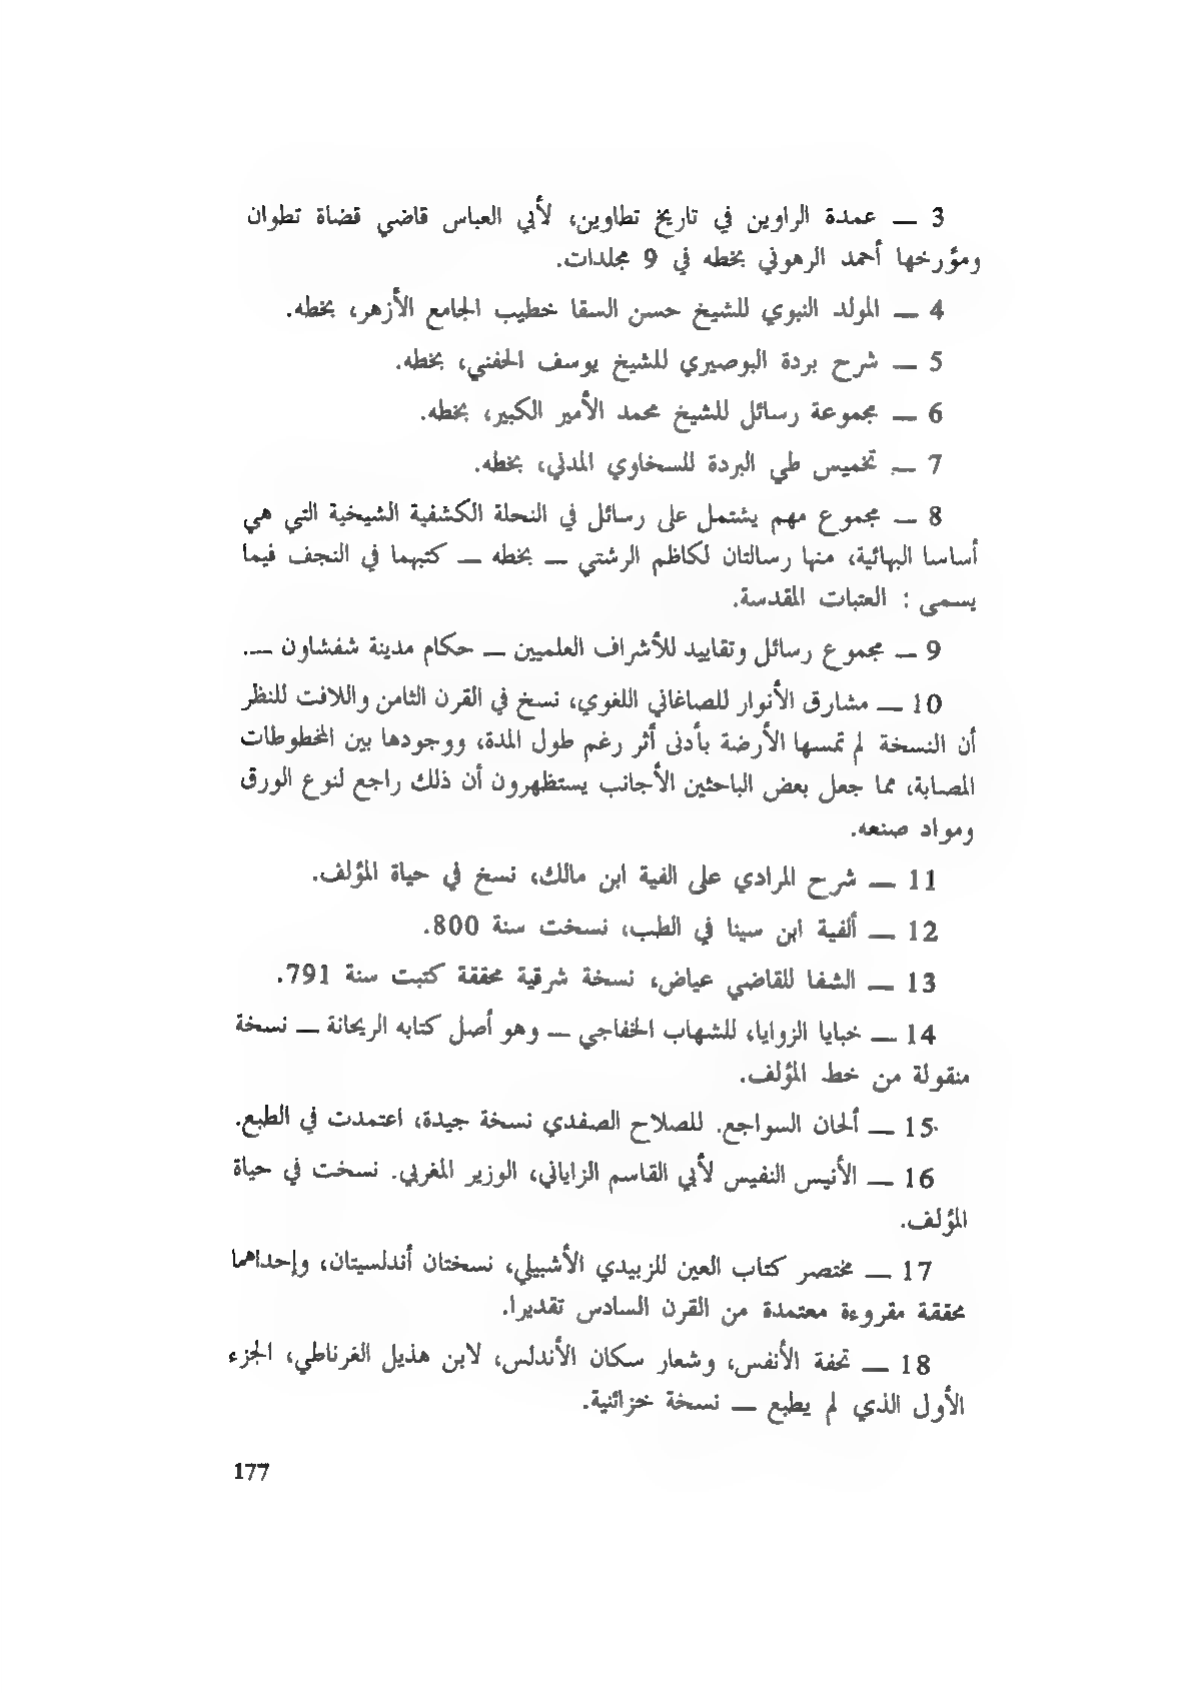 3 — عمدة الراوين في تاريخ تطاوين، لأبي العباس قاضي قضاة تطوان
ومؤرخها أحمد الرهوني بخطه في 9 مجلدات.
4 — المولد النبوي للشيخ حسن السقا خطيب الجامع الأزهر، بخطه.
5 — شرح بردة البوصيري للشيخ يوسف الحفني، بخطه.
6 — مجموعة رسائل للشيخ محمد الأمير الكبير، بخطه.
7 — تخميس طي البردة للسخاوي المدني، بخطه.
8 — مجموع مهم يشتمل على رسائل في النحلة الكشفية الشيخية التي هي
أساسا البهائية، منها رسالتان لكاظم الرشتي — بخطه — كتبهما في النجف فيما
يسمى : العتبات المقدسة.
9 — مجموع رسائل وتقاييد للأشراف العلميين — حكام مدينة شفشاون —.
10 — مشارق الأنوار للصاغاني اللغوي، نسخ في القرن الثامن واللافت للنظر
أن النسخة لم تمسها الأرضة بأدنى أثر رغم طول المدة، ووجودها بين المخطوطات
المصابة، مما جعل بعض الباحثين الأجانب يستظهرون أن ذلك راجع لنوع الورق
ومواد صنعه.
11 — شرح المرادي على الفية ابن مالك، نسخ في حياة المؤلف.
12 — ألفية ابن سينا في الطب، نسخت سنة 800.
13 — الشفا للقاضي عياض، نسخة شرقية محققة كتبت سنة 791.
14 — خبايا الزوايا، للشهاب الخفاجي — وهو أصل كتابه الريحانة — نسخة
منقولة من خط المؤلف.
15 — ألحان السواجع. للصلاح الصفدي نسخة جيدة، اعتمدت في الطبع.
16 — الأنيس النفيس لأبي القاسم الزاياني، الوزير المغربي. نسخت في حياة
المؤلف.
17 — مختصر كتاب العين للزبيدي الأشبيلي، نسختان أندلسيتان، وإحداهما
محققة مقروءة معتمدة من القرن السادس تقديرا.
18 — تحفة الأنفس، وشعار سكان الأندلس، لابن هذيل الغرناطي، الجزء
الأول الذي لم يطبع — نسخة خزائنية.
177